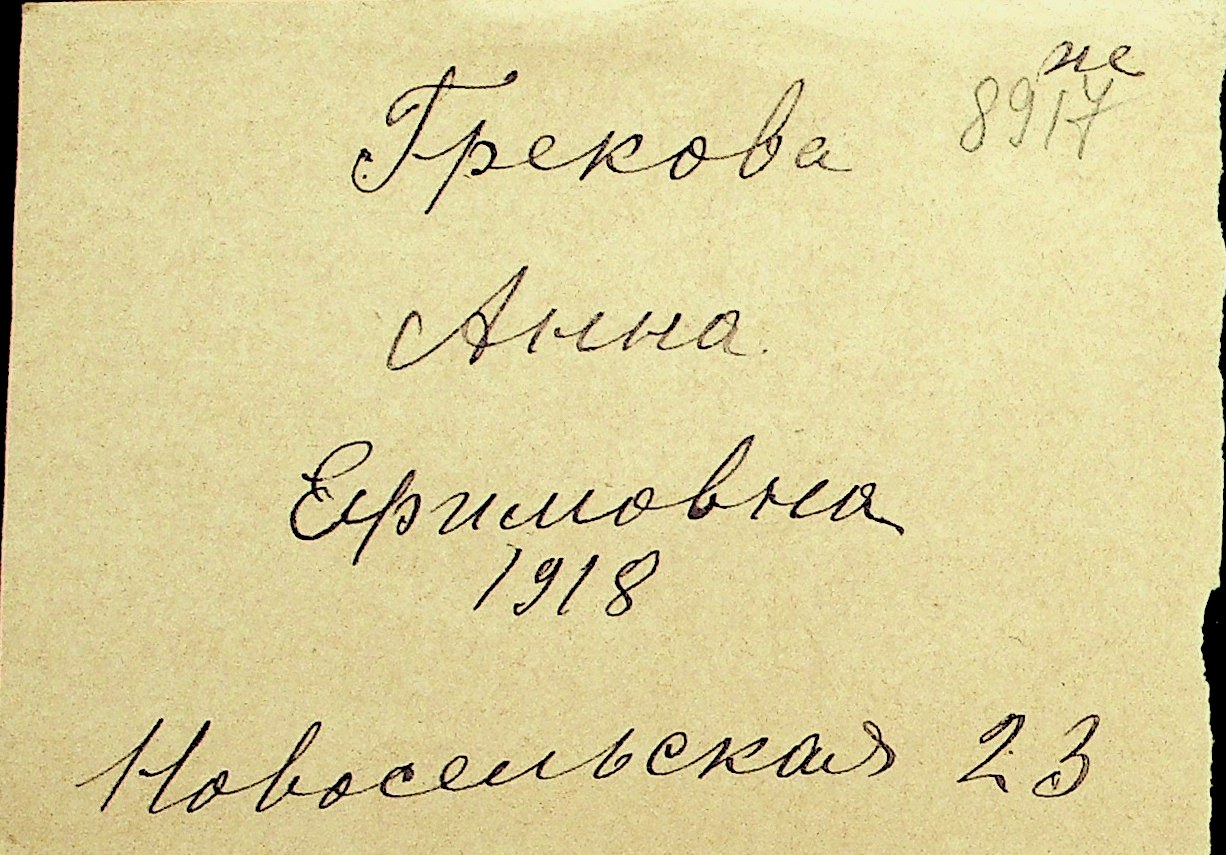 не
8917
Грекова
Анна
Ефимовна
1918
Новосельская 23